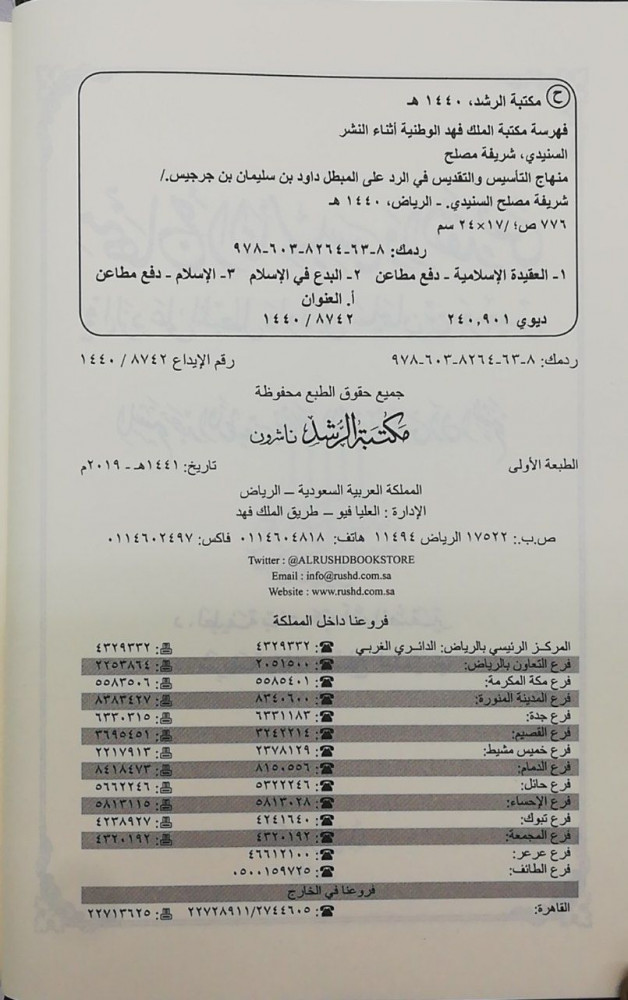 ح مكتبة الرشد، ١٤٤٠ هـ
فهرسة مكتبة الملك فهد الوطنية أثناء النشر
السنيدي، شريفة مصلح
منهاج التأسيس والتقديس في الرد على المبطل داود بن سليمان بن جرجيس./
شريفة مصلح السنيدي. - الرياض، ١٤٤٠ هـ
٧٧٦ ص؛ /١٧×٢٤ سم
ردمك: ٨-٦٣-٨٢٦٤-٦٠٣-٩٧٨
١- العقيدة الإسلامية - دفع مطاعن ٢- البدع في الإسلام ٣- الإسلام - دفع مطاعن
أ. العنوان
ديوي ٢٤٠,٩٠١ ٨٧٤٢ / ١٤٤٠
ردمك: ٨-٦٣-٨٢٦٤-٦٠٣-٩٧٨ رقم الإيداع ٨٧٤٢ / ١٤٤٠
جميع حقوق الطبع محفوظة
مكتبة الرشد ناشرون
الطبعة الأولى تاريخ: ١٤٤١هـ - ٢٠١٩م
المملكة العربية السعودية – الرياض
الإدارة : العليا فيو – طريق الملك فهد
ص.ب.: ١٧٥٢٢ الرياض ١١٤٩٤ هاتف: ٠١١٤٦٠٤٨١٨ فاكس: ٠١١٤٦٠٢٤٩٧
Twitter : @ALRUSHDBOOKSTORE
Email : info@rushd.com.sa
Website : www.rushd.com.sa
فروعنا داخل المملكة
المركز الرئيسي بالرياض: الدائري الغربي ☎: ٤٣٢٩٣٣٢ 📠: ٤٣٢٩٣٣٢
فرع التعاون بالرياض: ☎: ٢٠٥١٥٠٠ 📠: ٢٢٥٣٨٦٤
فرع مكة المكرمة: ☎: ٥٥٨٥٤٠١ 📠: ٥٥٨٣٥٠٦
فرع المدينة المنورة: ☎: ٨٣٤٠٦٠٠ 📠: ٨٣٨٣٤٢٧
فرع جدة: ☎: ٦٣٣١١٨٣ 📠: ٦٣٣٠٣١٥
فرع القصيم: ☎: ٣٢٤٢٢١٤ 📠: ٣٦٩٥٤٥١
فرع خميس مشيط: ☎: ٢٣٧٨١٢٩ 📠: ٢٢١٧٩١٣
فرع الدمام: ☎: ٨١٥٠٥٥٦ 📠: ٨٤١٨٤٧٣
فرع حائل: ☎: ٥٣٢٢٢٤٦ 📠: ٥٦٦٢٢٤٦
فرع الإحساء: ☎: ٥٨١٣٠٢٨ 📠: ٥٨١٣١١٥
فرع تبوك: ☎: ٤٢٤١٦٤٠ 📠: ٤٢٣٨٩٢٧
فرع المجمعة: ☎: ٤٣٢٠١٩٢ 📠: ٤٣٢٠١٩٢
فرع عرعر: ☎: ٤٦٦١٢١٠٠
فرع الطائف: ☎: ٠٥٠٠١٥٩٧٢٥
فروعنا في الخارج
القاهرة: ☎: ٢٢٧٢٨٩١١/٢٧٤٤٦٠٥ 📠: ٢٢٧١٣٦٢٥